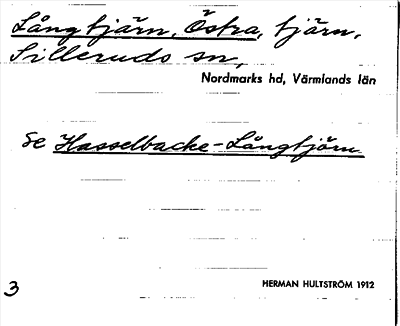 Långtjärn, Östra, tjärn,
Silleruds sn,
Nordmarks hd, Värmlands län
Se Hasselbacke-Långtjärn
3
HERMAN HULTSTRÖM 1912